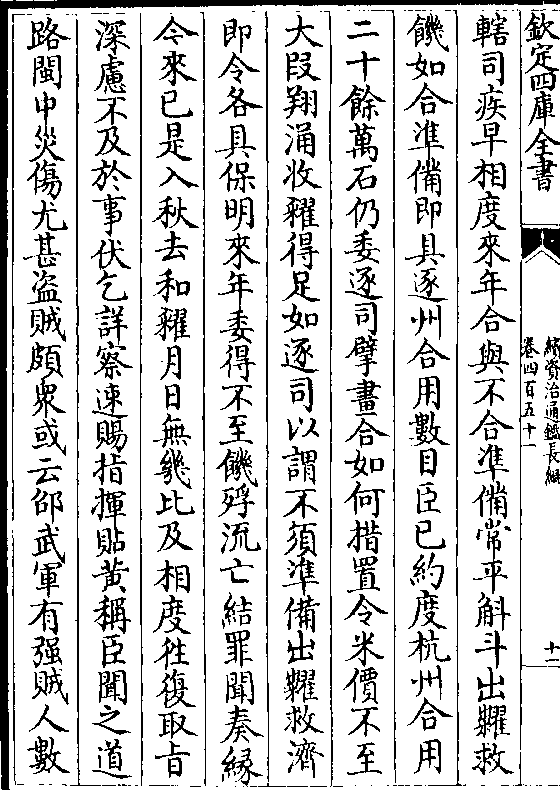 欽定四庫全書
續資治通鑑長編
卷四百五十
十一
轄司疾早相度來年合與不合准備常平斛斗出糶救
饑如合准備即具逐州合用數目臣已約度杭州合用
二十餘萬石仍委逐司擘畫合如何措置令米價不至
大段翔涌收糴得足如逐司以謂不須準備出糶救濟
即令各具保明來年委得不至饑殍流亡結罪聞奏緣
今來已是入秋去和糴月日無幾比及相度往復取㫖
深慮不及於事伏乞詳察速賜指揮貼黃稱臣聞之道
路閩中災傷尤甚盗賊頗衆或云邵武軍有强賊人數